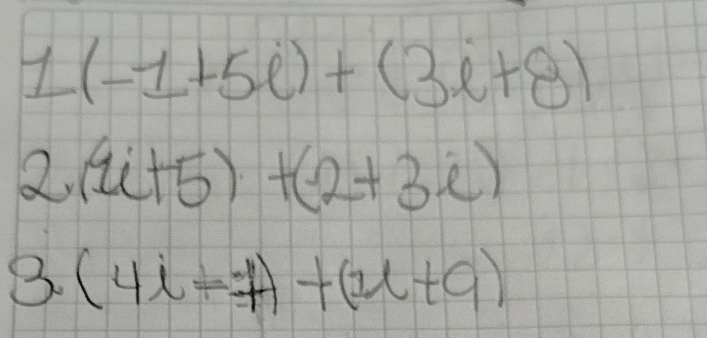 1(-1+5i)+(3i+8)
2.(2i+5)+(-2+3i)
3.(4i+7)+(2i+9)